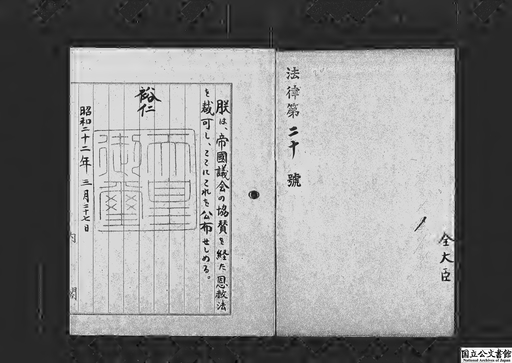 法律第二十號
全大臣
朕は、帝國議会の協賛を経た恩赦法
を裁可し、ここにこれを公布せしめる。
裕仁
天皇御璽
昭和二十二年三月二十七日
内閣
国立公文書館
National Archives of Japan